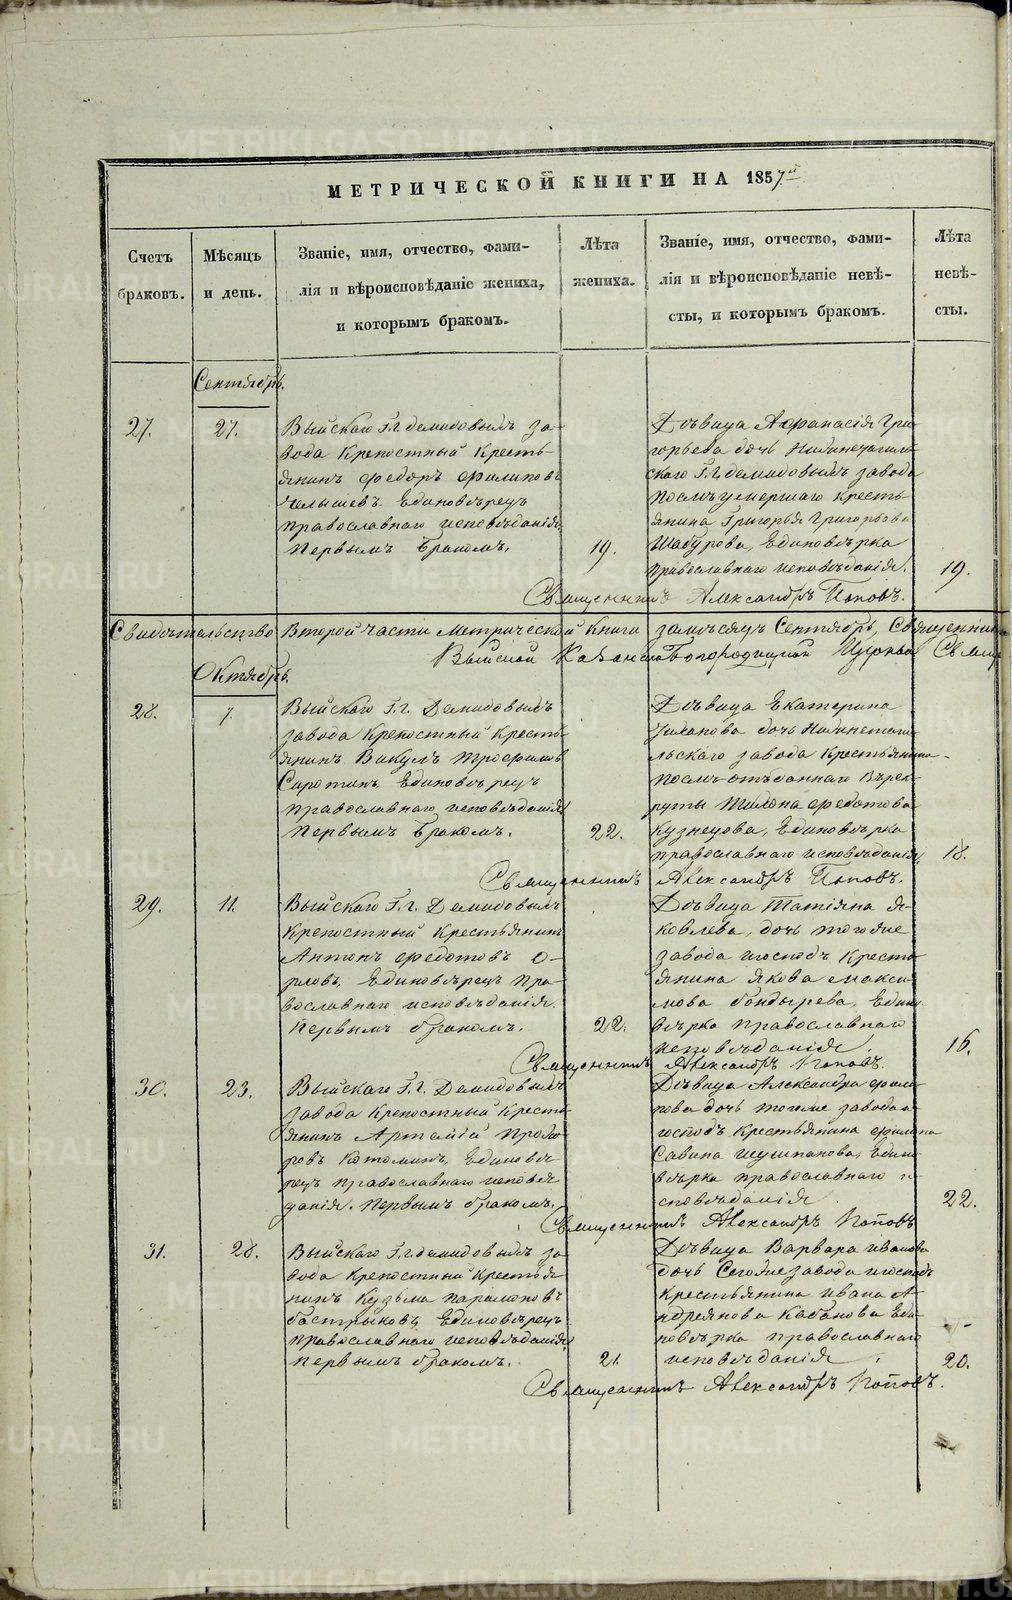 МЕТРИЧЕСКОЙ КНИГИ НА 1857й
Счетъ браковъ.
Мѣсяцъ и день.
Званіе, имя, отчество, фами-
лія и вѣроисповѣданіе жениха,
и которымъ бракомъ.
Лѣта жениха.
Званіе, имя, отчество, фами-
лія и вѣроисповѣданіе невѣ-
сты, и которымъ бракомъ.
Лѣта невѣ-
сты.
Сентябрь.
27.
27.
Выйскаго Г.г. демидовыхъ за-
вода крепостный кресть-
янинъ федоръ филиповъ
Челышевъ. Единовѣрецъ
православнаго исповѣданія,
первымъ бракомъ.
19.
Дѣвица Афанасія Гри-
горьева дочь Нижнетагил-
скаго Г.г. демидовыхъ завода
послѣ умершаго кресть-
янина Григорья Григорьева
Шабурова, Единовѣрка
православнаго исповѣданія.
19.
Священникъ Александръ Поповъ.
Свидѣтельство Второй части Метрической Книги за мѣсяцъ Сентябрь, Священники
Выйской Казанско Богородицкой Церкви
Октябрь.
28.
7.
Выйскаго Г.г. Демидовыхъ
завода крепостный кресть-
янинъ Викулъ Трофимовъ
Сиротинъ Единовѣрецъ
православнаго исповѣданія
первымъ бракомъ.
22.
Дѣвица Екатерина
дочь Нижнетаги-
льскаго завода крестьянина
послѣ отъданнаго Въ рек-
руты федотова
Кузнецова, Единовѣрка
православнаго исповѣданія,
18.
Священникъ Александръ Поповъ.
29.
11.
Выйскаго Г.г. Демидовыхъ
крепостный крестьянинъ
Антонъ федотовъ О-
рловъ, Единовѣрецъ пра-
вославнаго исповѣданія
первымъ бракомъ.
22.
Дѣвица Татіяна я-
ковлева, дочь тогоже
завода игосподъ кресть-
янина якова макси-
мова бондырева, Едино-
вѣрка православнаго
исповѣданія.
16.
Священникъ Александръ Поповъ.
30.
23.
Выйскаго Г.г. Демидовыхъ
завода крепостный кресть-
янинъ Артемій
ровъ Единовѣ-
рецъ православнаго исповѣ-
данія. первымъ бракомъ.
Дѣвица Александра фили-
пова дочь тогоже завода и
господъ крестьянина филипа
Савина шушпанова, Едино-
вѣрка православнаго и-
сповѣданія.
22.
Священникъ Александръ Поповъ
31.
28.
Выйскаго Г.г. демидовыхъ за-
вода крепостный крестья-
нинъ Кузьма парамоновъ
бастрыковъ, Единовѣрецъ
православнаго исповѣданія,
первымъ бракомъ.
21.
Дѣвица Варвара иванова
дочь Сегоже завода игосподъ
крестьянина ивана А-
ндреянова Кабанова Еди-
новѣрка православнаго
исповѣданія.
20.
Священникъ Александръ Поповъ.
METRIKI.GASO-URAL.RU